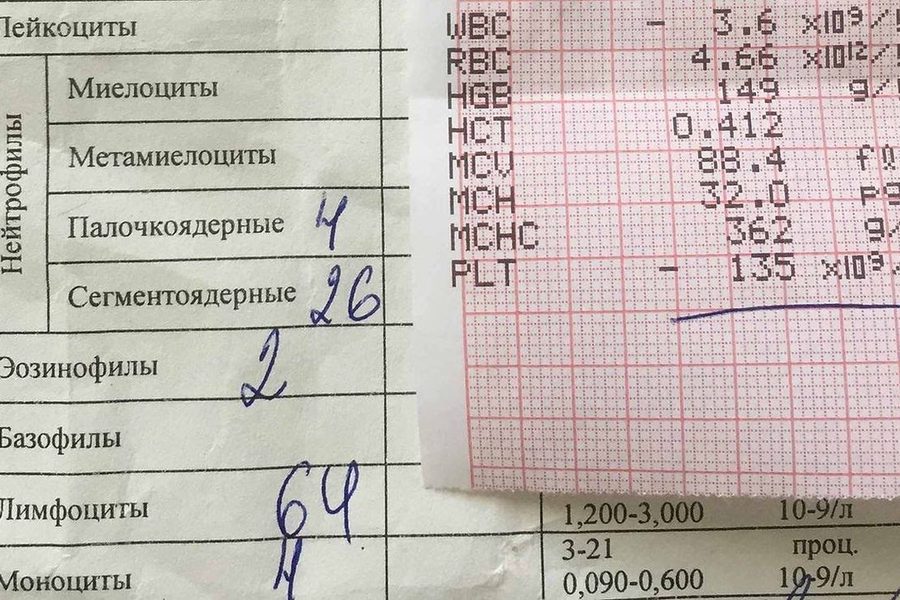 Лейкоциты
Нейтрофилы
Миелоциты
Метамиелоциты
Палочкоядерные 4
Сегментоядерные 26
Эозинофилы 2
Базофилы
Лимфоциты 64
1,200-3,000 10-9/л
3-21 проц.
Моноциты 4
0,090-0,600 10-9/л
WBC - 3.6 x10³/
RBC 4.66 x10¹²/
HGB 149 g/
HCT 0.412
MCV 88.4 fl
MCH 32.0 pg
MCHC 362 g/
PLT - 135 x10³